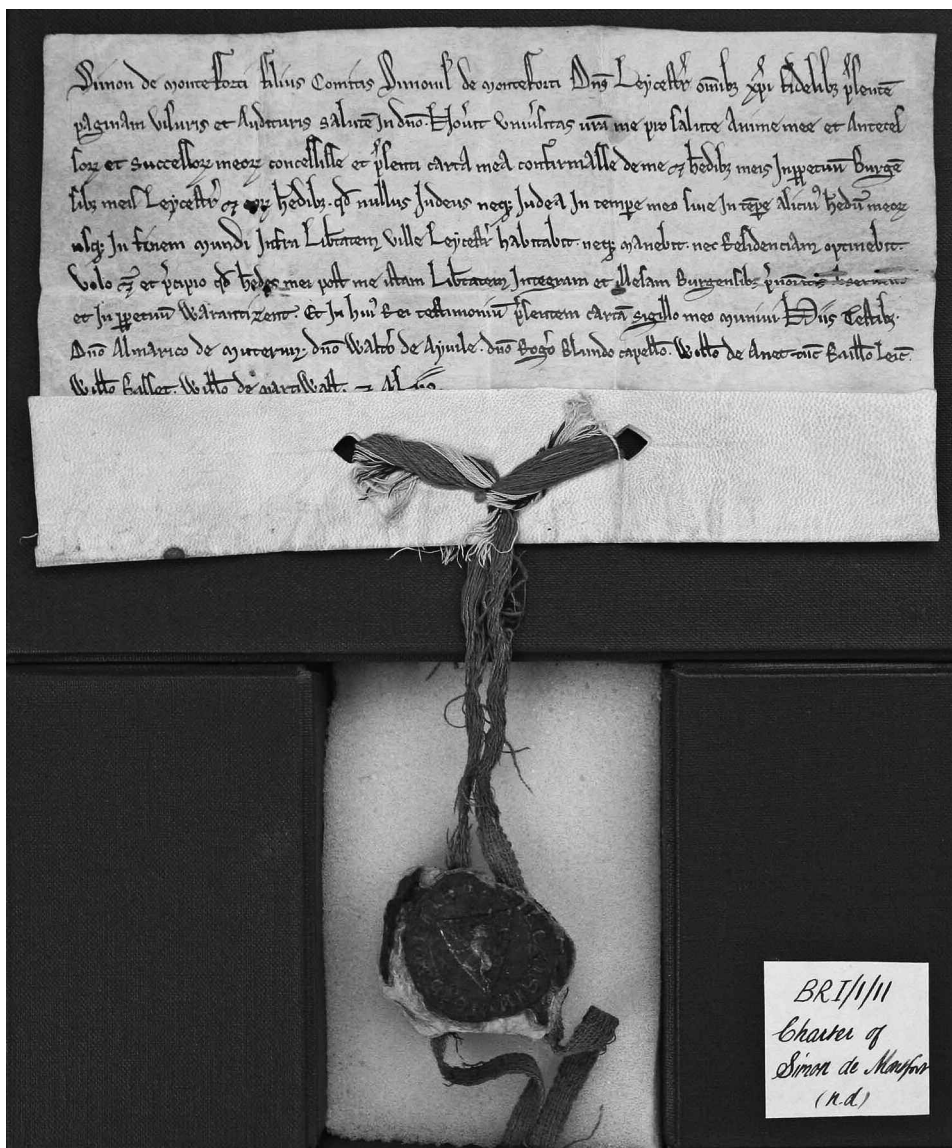 Simon de monteforti filius Comitis Simonis de monteforti Dns Leycestr omibz xpi fidelibz psentē
paginam visuris et Audituris salutē In dno Noverit universitas vra me pro salute Anime mee et Anteces
sorz et successorz meorz concessisse et psenti carta mea confirmasse de me & hedibz meis Inppetuū Burgē
sibz meis Leycestr & eorz hedibz. qd nullus Judeus neqz Judea In tempe meo sive In tēpe Alicui hedū meorz
usqz In finem mundi Infra Libtatem ville Leycestr habitabit. neqz manebit. nec Residenciam optinebit.
Volo & et pcipio qd hedes mei post me istam Libtatem Integram et illesam Burgensibz pnoiatis observēt
et In ppetuū Warantizent. Et In hui Rei testimoniū psentem cartā sigillo meo munivi Hiis Testibz.
Dno Almarico de mitern. dno Waltō de Ayuile. dno Rogo Blundo capello. Wollo de Anet tūc Baillo Leic.
Willo Basset. Willo de martiwast. & Aliis
BRI/1/11
Charter of
Simon de Montfort
(n.d)